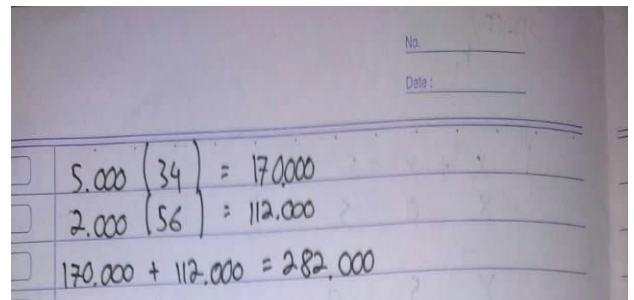 No.
Date :
5.000 (34) = 170.000
2.000 (56) = 112.000
170.000 + 112.000 = 282.000